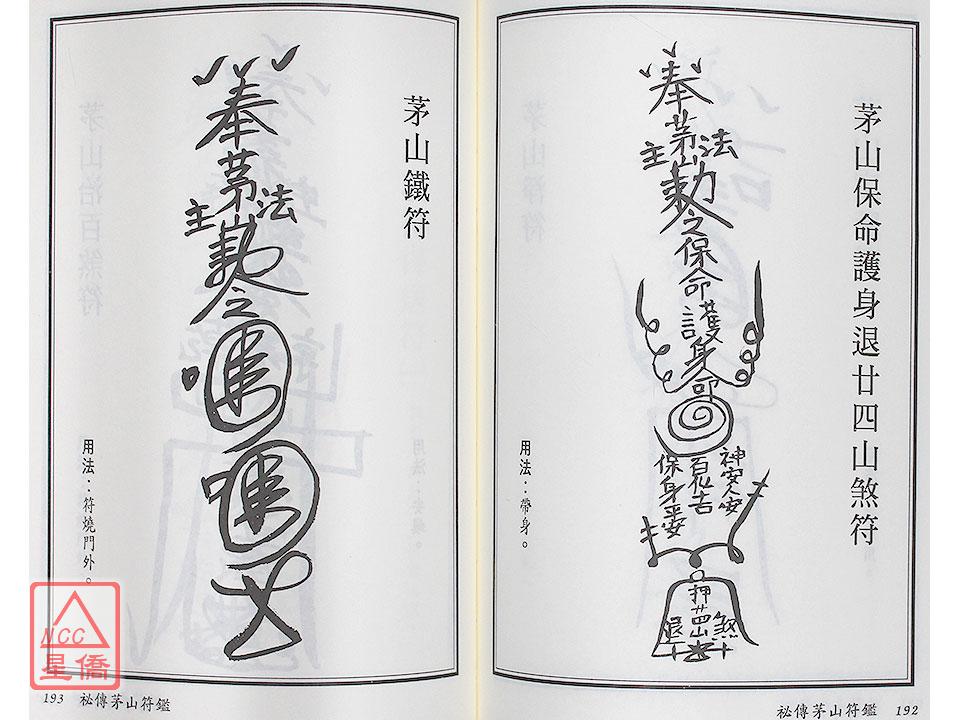 茅山保命護身退廿四山煞符
奉
茅山法主
勅之保命護身命
神安人安
百无吉
保身平安
押
退廿四山煞
用法：帶身。
祕傳茅山符鑑 192
茅山鐵符
奉
茅山法主
勅之
用法：符燒門外。
193 祕傳茅山符鑑
NCC
星僑